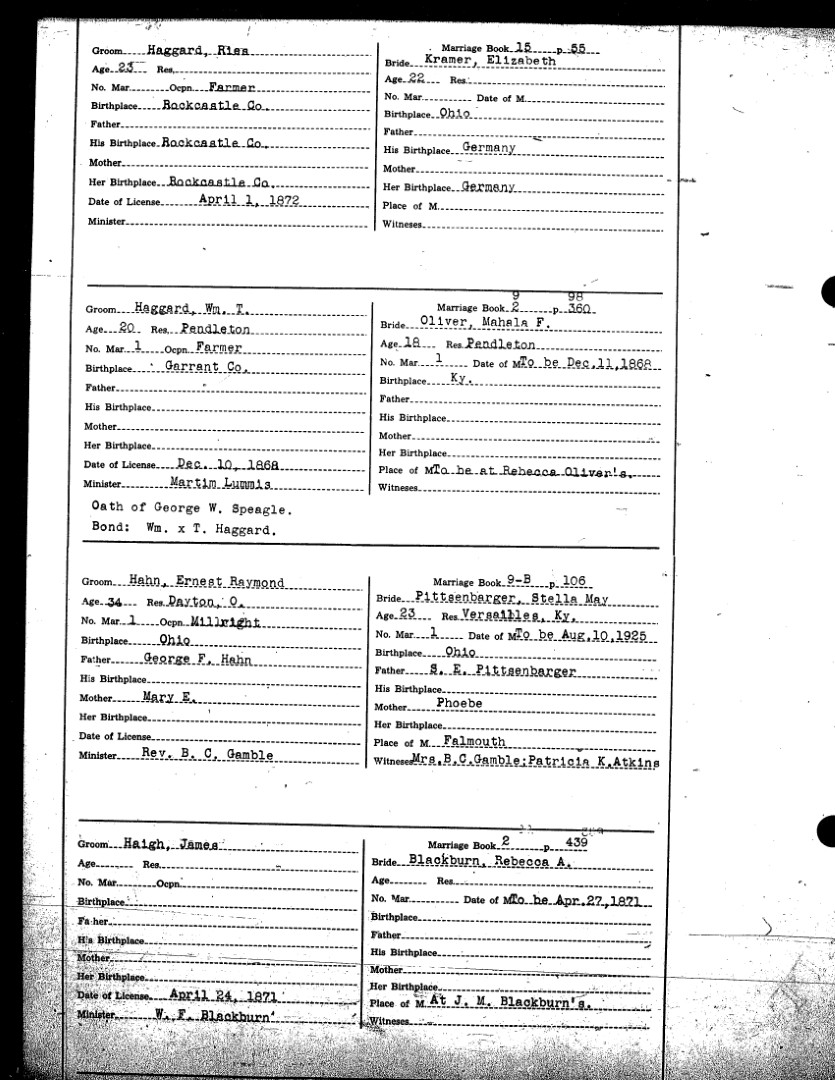 Marriage Book 15 p 55
Groom Haggard, Risa
Bride Kramer, Elizabeth
Age 23 Res.
Age 22 Res.
No. Mar. Ocpn. Farmer
No. Mar. Date of M.
Birthplace Rockcastle Co.
Birthplace Ohio
Father
Father
His Birthplace Rockcastle Co.
His Birthplace Germany
Mother
Mother
Her Birthplace Rockcastle Co.
Her Birthplace Germany
Date of License April 1, 1872
Place of M.
Minister
Witneses
9 98
Marriage Book 2 p 360
Groom Haggard, Wm. T.
Bride Oliver, Mahala F.
Age 20 Res. Pendleton
Age 18 Res. Pendleton
No. Mar. 1 Ocpn. Farmer
No. Mar. 1 Date of M. To be Dec. 11, 1868
Birthplace Garrant Co.
Birthplace Ky.
Father
Father
His Birthplace
His Birthplace
Mother
Mother
Her Birthplace
Her Birthplace
Date of License Dec. 10, 1868
Place of M. To be at Rebecca Oliver's.
Minister Martim Lummis
Witneses
Oath of George W. Speagle.
Bond: Wm. x T. Haggard.
Marriage Book 9-B p 106
Groom Hahn, Ernest Raymond
Bride Pittsenbarger, Stella May
Age 34 Res. Dayton, O.
Age 23 Res. Versailles, Ky.
No. Mar. 1 Ocpn. Millright
No. Mar. 1 Date of M. To be Aug. 10, 1925
Birthplace Ohio
Birthplace Ohio
Father George F. Hahn
Father S. E. Pittsenbarger
His Birthplace
His Birthplace
Mother Mary E.
Mother Phoebe
Her Birthplace
Her Birthplace
Date of License
Place of M. Falmouth
Minister Rev. B. C. Gamble
Witneses Mrs.B.C.Gamble;Patricia K.Atkins
Marriage Book 2 p 439
Groom Haigh, James
Bride Blackburn, Rebecca A.
Age Res.
Age Res.
No. Mar. Ocpn.
No. Mar. Date of M. To be Apr. 27, 1871
Birthplace
Birthplace
Father
Father
His Birthplace
His Birthplace
Mother
Mother
Her Birthplace
Her Birthplace
Date of License April 24, 1871
Place of M. At J. M. Blackburn's.
Minister W. F. Blackburn
Witneses